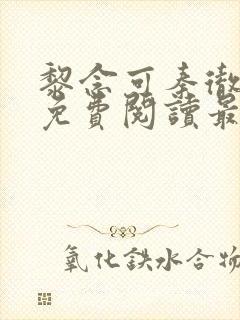 黎念可秦徹
免費閱讀最
氧化鉄水合物